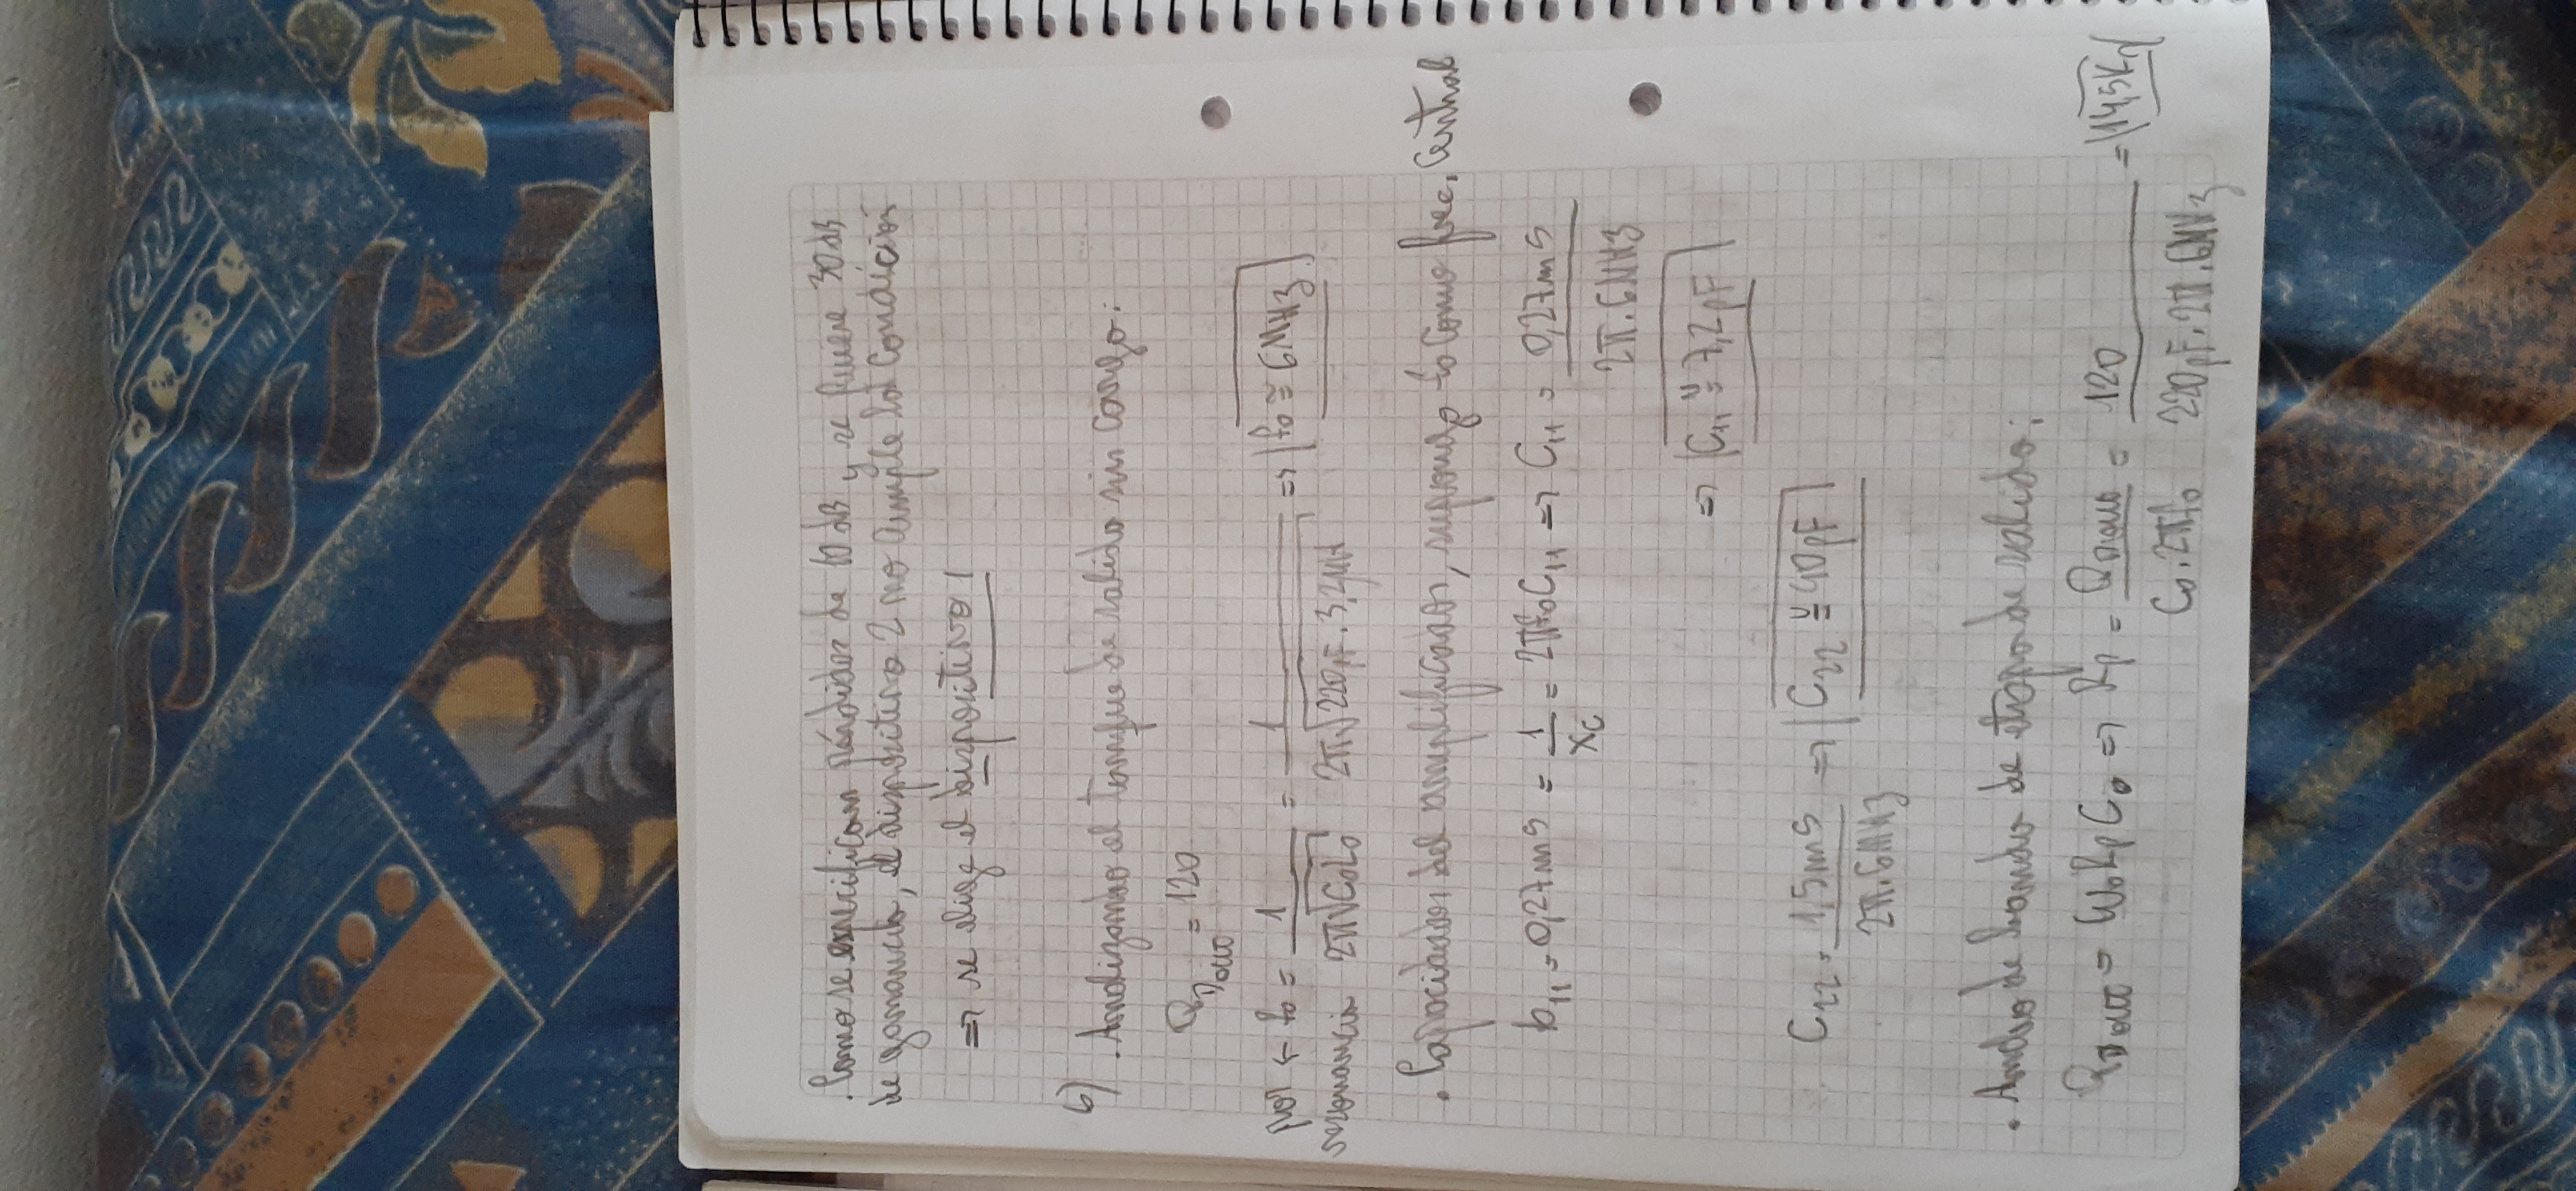 . Como se especifican pérdidas de 10 dB y se quiere 30 dB
de ganancia, el dispositivo 2 no cumple las condición
=> se elige el dispositivo 1
b) . Analizando el tanque de salida sin carga:
Q_Dout = 120
por ← f₀ = 1 / 2π√C₀L₀ = 1 / 2π√220pF . 3,2μH => f₀ ≅ 6MHz
resonancia
. Capacidades del amplificador, supongo f₀ como frec. Central
b₁₁ = 0,27mS = 1/Xc = 2πf₀C₁₁ => C₁₁ = 0,27mS / 2π.6MHz
=> C₁₁ ≅ 7,2pF
C₂₂ = 1,5mS / 2π.6MHz => C₂₂ ≅ 40pF
. Ancho de banda de etapa de salida:
Q_Dout = ω₀RpC₀ => Rp = Q_Dout / C₀.2πf₀ = 120 / 220pF.2π.6MHz = 14,5K